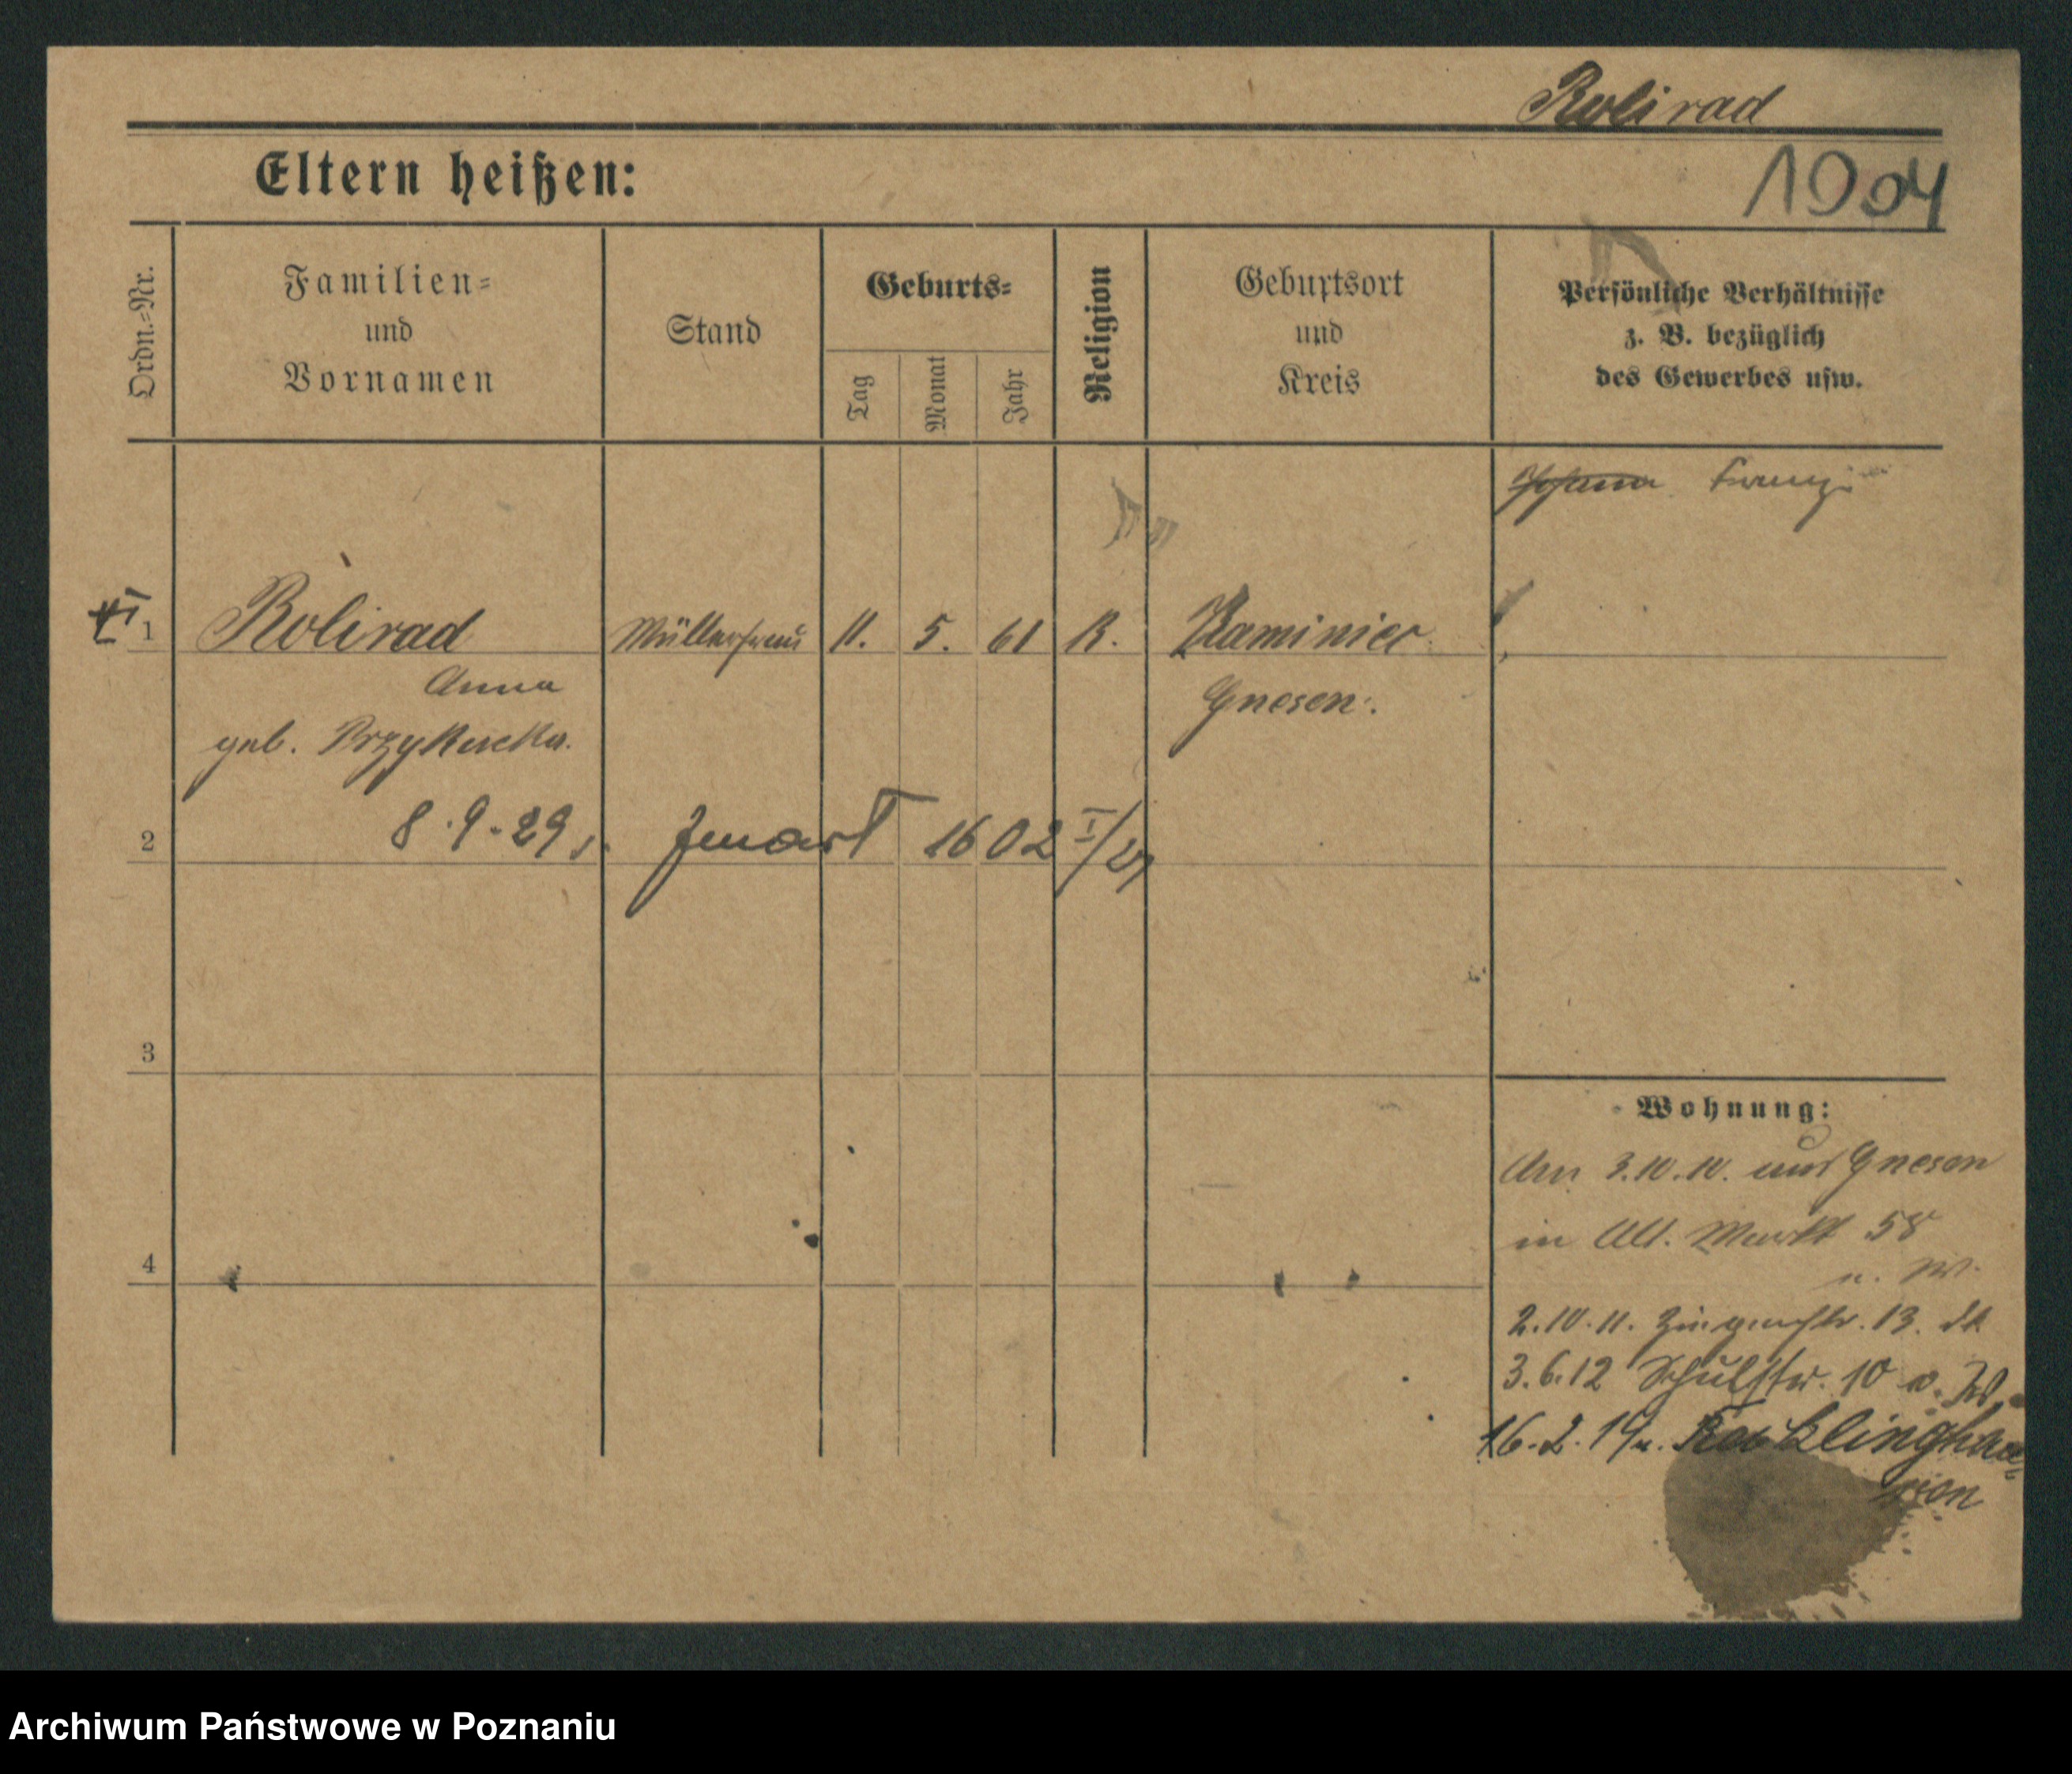 Rolirad
Eltern heißen:
1904
Ordn.=Nr.
Familien=
und
Vornamen
Stand
Geburts=
Tag
Monat
Jahr
Religion
Geburtsort
und
Kreis
Persönliche Verhältnisse
z. B. bezüglich
des Gewerbes usw.
1
Rolirad
Müllerfrau
11.
5.
61
K.
Kaminiec
Anna
Gnesen.
geb.
2
8.9.29
zmarł
1602 I/29
3
Wohnung:
Am 3.10.10. aus Gnesen
in Alt. Markt 58
4
2.10.11.
13.
3.6.12 Schulstr. 10
16.2.14 n. Recklinghau=
sen
Archiwum Państwowe w Poznaniu